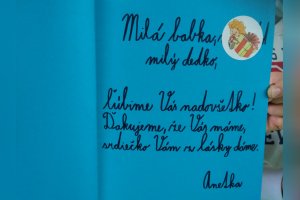 Milá babka,
milý dedko,
ľúbime Vás nadovšetko!
Ďakujeme, že Vás máme,
srdiečko Vám z lásky dáme.
Anetka